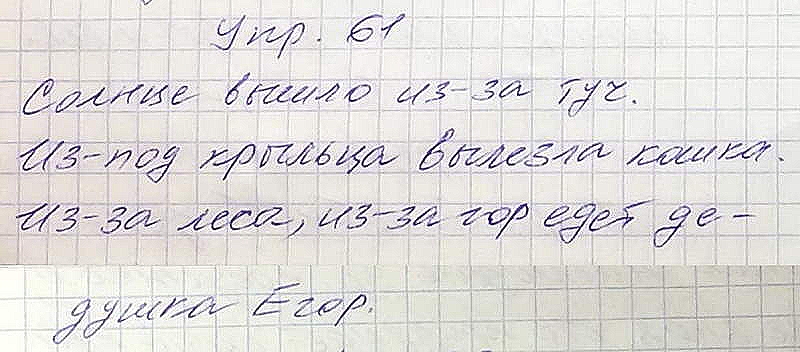 Упр. 61
Солнце вышло из-за туч.
Из-под крыльца вылезла кошка.
Из-за леса, из-за гор едет де-
душка Егор.